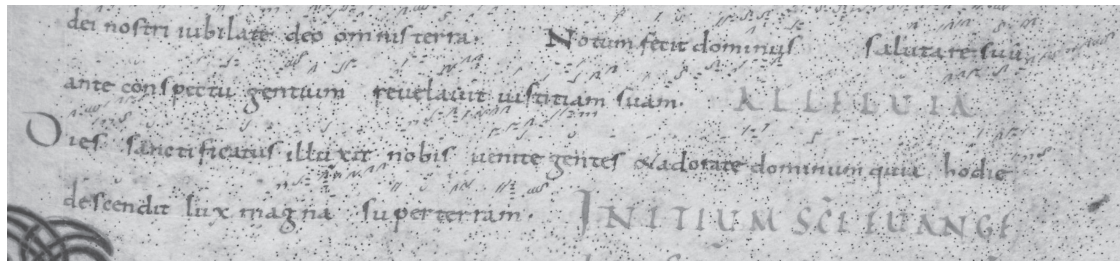 dei nostri iubilate deo omnis terra. Notum fecit dominus salutare suū
ante conspectu gentium reuelauit iustitiam suam. ALLELUIA
Dies sanctificatus illuxit nobis uenite gentes & adorate dominum quia hodie
descendit lux magna super terram. INITIUM SC̄I EUANGE